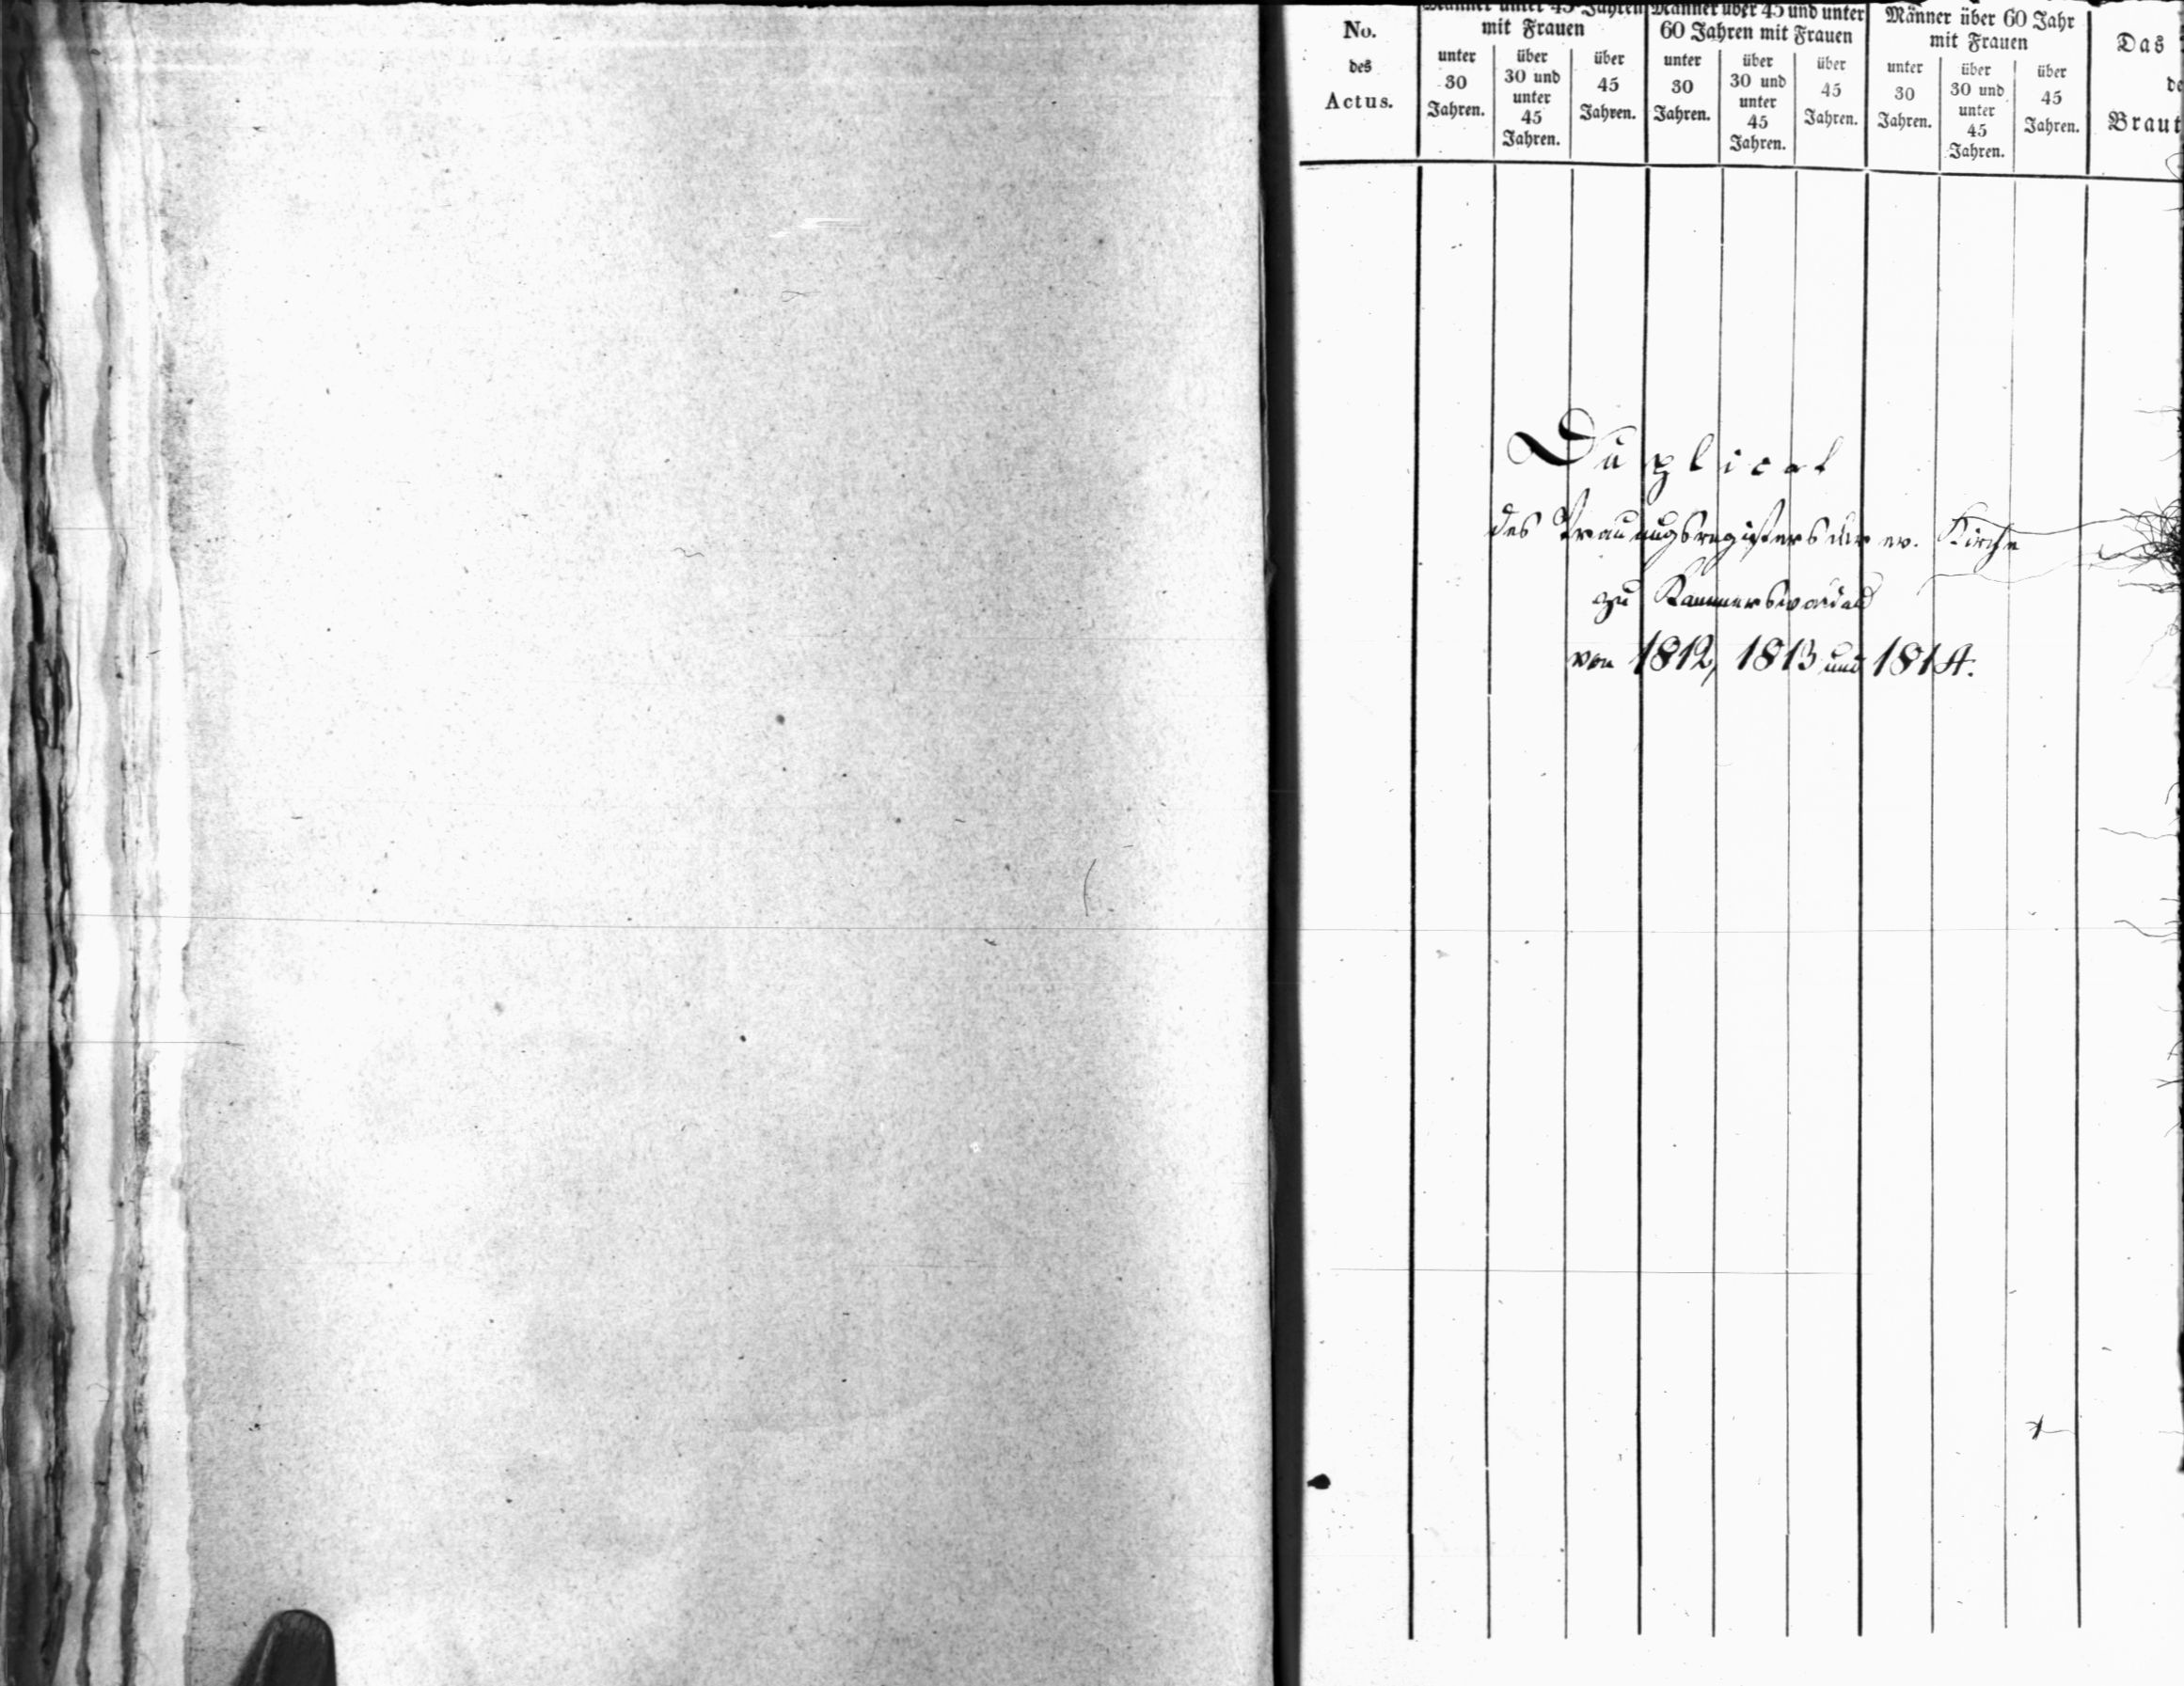 No.
des
Actus.
Männer unter 45 Jahren
mit Frauen
unter
30
Jahren.
über
30 und
unter
45
Jahren.
über
45
Jahren.
Männer über 45 und unter
60 Jahren mit Frauen
unter
30
Jahren.
über
30 und
unter
45
Jahren.
über
45
Jahren.
Männer über 60 Jahr
mit Frauen
unter
30
Jahren.
über
30 und
unter
45
Jahren.
über
45
Jahren.
Das
de
Braut
Duplicat
des Trauungsregisters der ev. Kirche
zu Kammerswaldau
von 1812, 1813 und 1814.